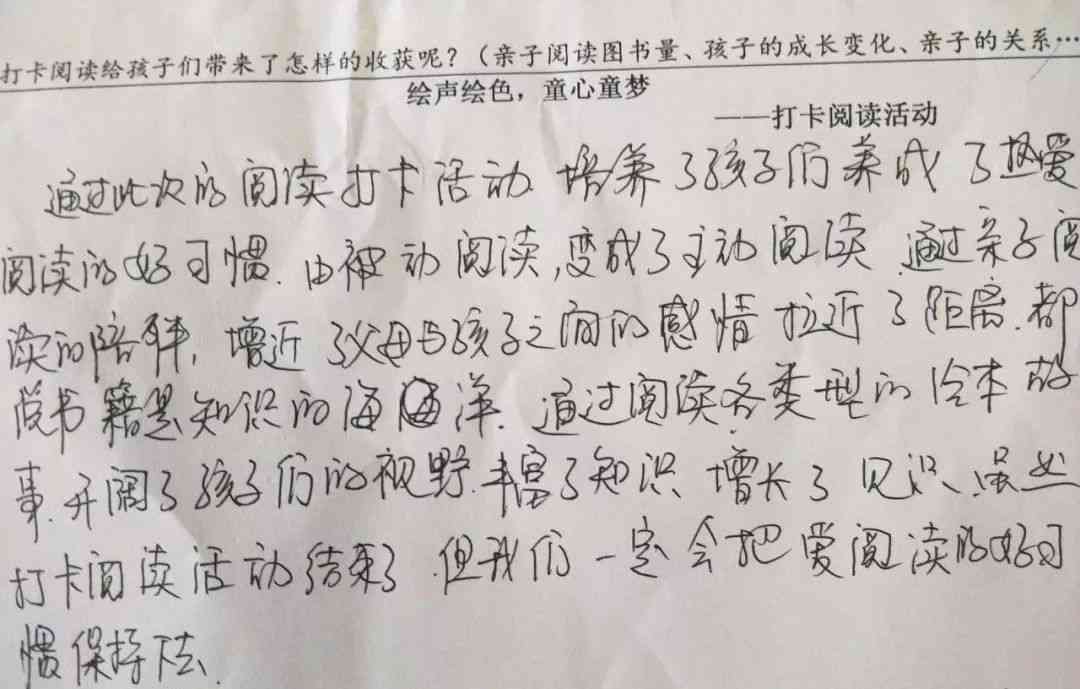 打卡阅读给孩子们带来了怎样的收获呢？（亲子阅读图书量、孩子的成长变化、亲子的关系…
绘声绘色，童心童梦
——打卡阅读活动
通过此次的阅读打卡活动 培养了孩子们养成了热爱
阅读的好习惯.由被动阅读,变成了主动阅读.通过亲子阅
读的陪伴,增近了父母与孩子之间的感情 拉近了距离.都
说书籍是知识的海洋.通过阅读各类型的绘本故
事.开阔了孩子们的视野.丰富了知识 增长了见识.虽然
打卡阅读活动结束了.但我们一定会把爱阅读的好习
惯保持下去.